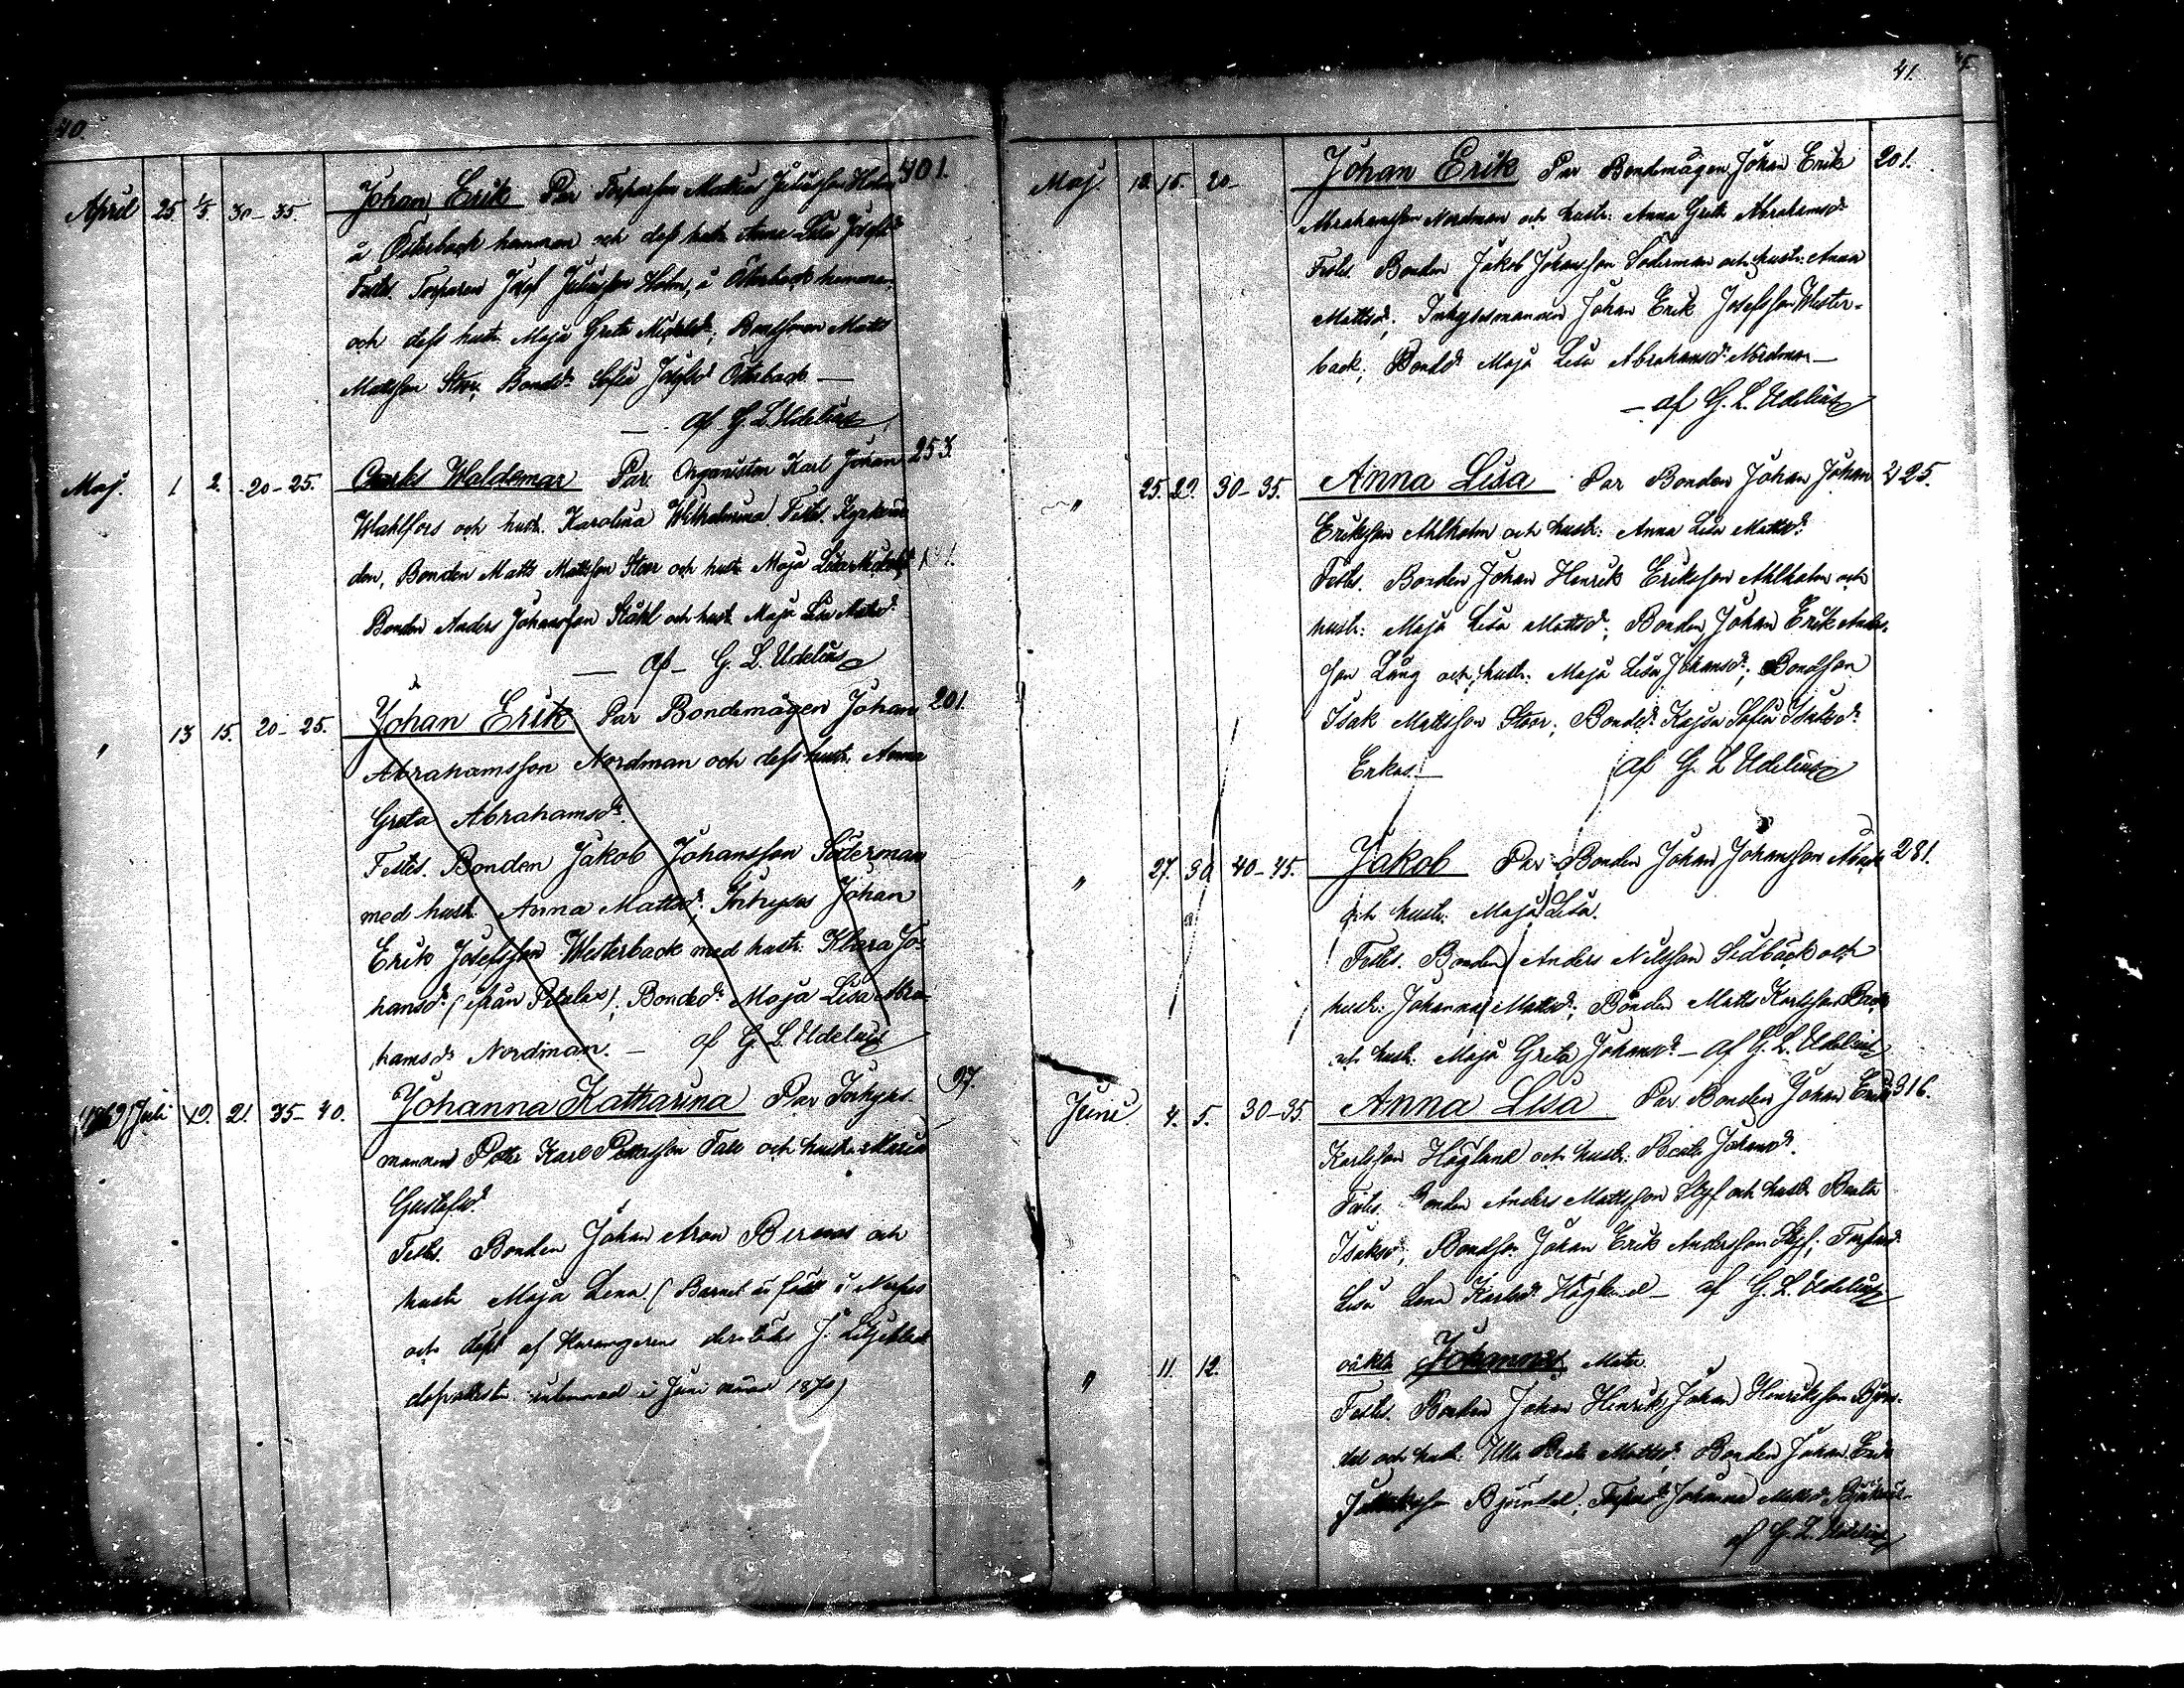 40.
April 25. 1/5 30–35. Johan Erik Par Torparson Mattias Juliusson Holm 401.
å Österback hemman och dess hustr. Anna Lisa Josefsdr
Testes. Torparen Josef Juliusson Holm, å Österback hemman,
och dess hustr. Maja Greta Michelsdr; Bondsonen Matts
Mattsson Storr, Bondedr Sofia Josefsdr Österback —
— af G. L. Udelius
Maj. 1. 2. 20–25. Charles Waldemar Par. Organisten Karl Johan 253.
Wahlfors och hustr. Karolina Wilhelmina Testes. Kyrkvär
den, Bonden Matts Mattsson Storr och hustr. Maja Lisa
Bonden Anders Johansson Ståhl och hustr. Maja Lisa Mattsdr
— af – G. L. Udelius
" 13 15. 20–25. Johan Erik Par Bondemågen Johan 201.
Abrahamsson Nordman och dess hustr. Anna
Greta Abrahamsdr.
Testes. Bonden Jakob Johansson Söderman
med hustr. Anna Mattsdr. Inhyses Johan
Erik Josefsson Westerback med hustr. Klara Jo-
hansdr. (från Petalax); Bondedr. Maja Lisa Abra-
hamsdr Nordman. — af G. L. Udelius
1869 Juli 19. 21. 35–40. Johanna Katharina Par Inhyses- 97.
mannen Petter Karl Pettersson Falk och hustru Maria
Gustafsdr.
Testes. Bonden Johan Aron Bernas och
hustr Maja Lena. (Barnet är född i Nerpes
och döpt af J. Liljeblad
i Juni månad 1870)
41.
Maj 13. 15. 20– Johan Erik Par Bondemågen Johan Erik 201.
Abrahamsson Nordman och hustr: Anna Greta Abrahamsdr
Testes. Bonden Jakob Johansson Söderman och hustr: Anna
Mattsdr; Inhysesmannen Johan Erik Josefsson Wester-
back; Bondedr Maja Lisa Abrahamsdr. Nordman —
— af G. L. Udelius
" 25. 29. 30–35. Anna Lisa Par Bonden Johan Johan 225.
Eriksson Ahlholm och hustr: Anna Lisa Mattsdr.
Testes. Bonden Johan Henrik Eriksson Ahlholm och
hustr: Maja Lisa Mattsdr; Bonden Johan Erik Anders-
son Lång och hustr: Maja Lisa Johansdr; Bondson
Isak Mattsson Storr; Bondedr. Kajsa Sofia Isaksdr.
Erkas. — af G. L. Udelius
" 27. 30 40–45. Jakob Par Bonden Johan Johansson 281.
och hustr: Maja Lisa.
Testes. Bonden Anders Nilsson Sidbäck och
hustr: Johanna Mattsdr; Bonden Matts Karlsson
och hustr. Maja Greta Johansdr. — af G. L. Udelius
Juni 4. 5. 30–35 Anna Lisa Par Bonden Johan Erik 316.
Karlsson Höglund och hustr: Beata Johansdr.
Testes. Bonden Anders Mattsson Styf och hustr Beata
Isaksdr; Bondson Johan Erik Andersson Styf;
Lisa Lena Karlsdr Höglund — af G. L. Udelius
" 11. 12. oäkta Johannes Mater
Testes. Bonden Johan Henrik Johan Henriksson Björn-
dal och hustr. Ulla Beata Mattsdr; Bonden Johan Erik
Björndal; Johanna Mattsdr
af G. L. Udelius